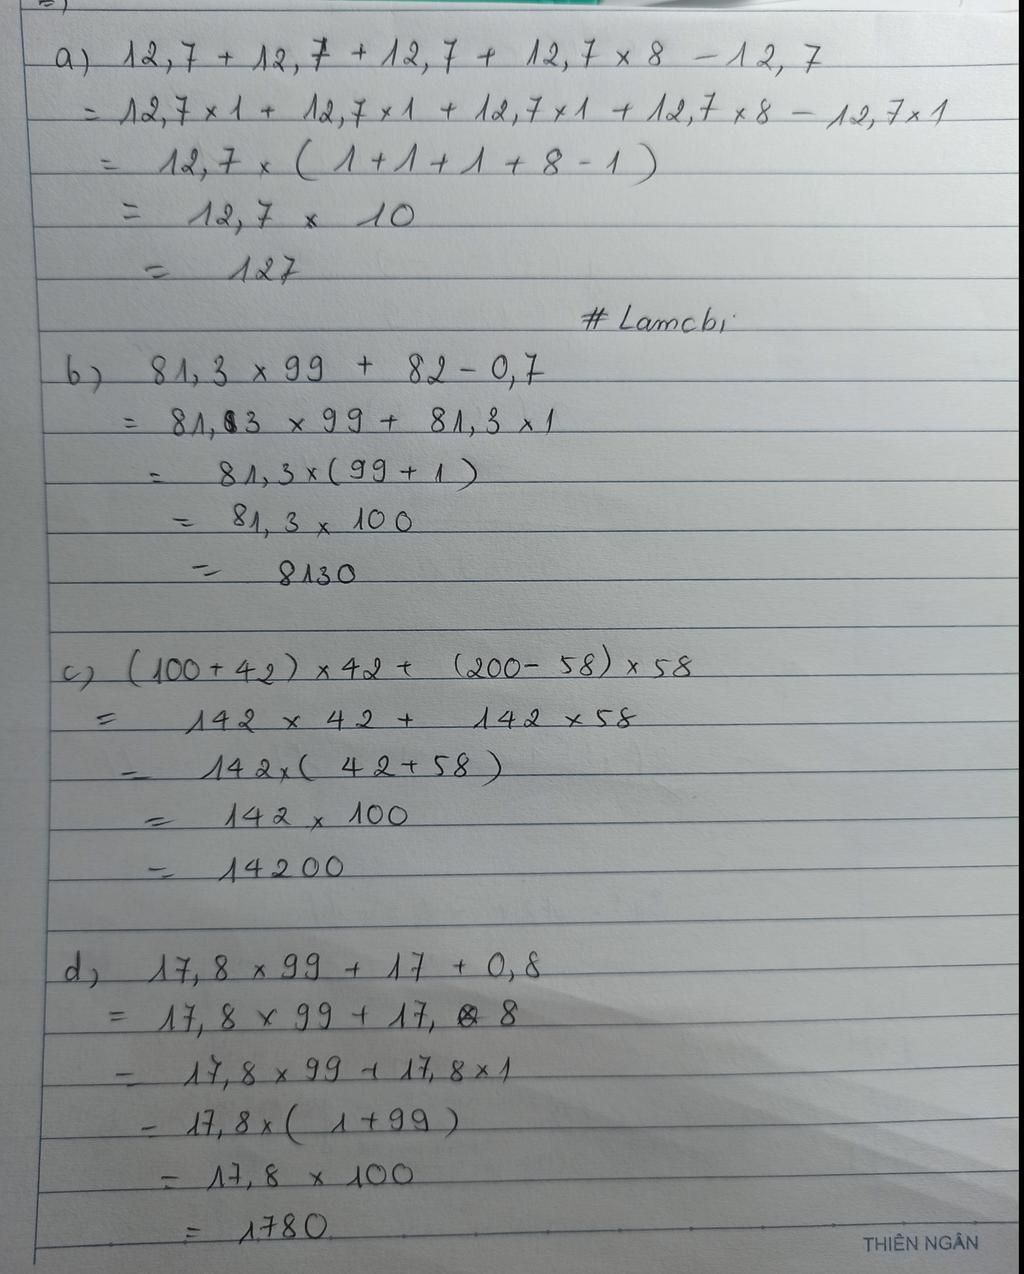 a) 12,7 + 12,7 + 12,7 + 12,7 × 8 - 12,7
= 12,7 × 1 + 12,7 × 1 + 12,7 × 1 + 12,7 × 8 - 12,7 × 1
= 12,7 × ( 1 + 1 + 1 + 8 - 1 )
= 12,7 × 10
= 127
# Lamcbi
b) 81,3 × 99 + 82 - 0,7
= 81,3 × 99 + 81,3 × 1
= 81,3 × ( 99 + 1 )
= 81,3 × 100
= 8130
c) (100 + 42) × 42 + (200 - 58) × 58
= 142 × 42 + 142 × 58
= 142 × ( 42 + 58 )
= 142 × 100
= 14200
d) 17,8 × 99 + 17 + 0,8
= 17,8 × 99 + 17,8
= 17,8 × 99 + 17,8 × 1
= 17,8 × ( 1 + 99 )
= 17,8 × 100
= 1780
THIÊN NGÂN